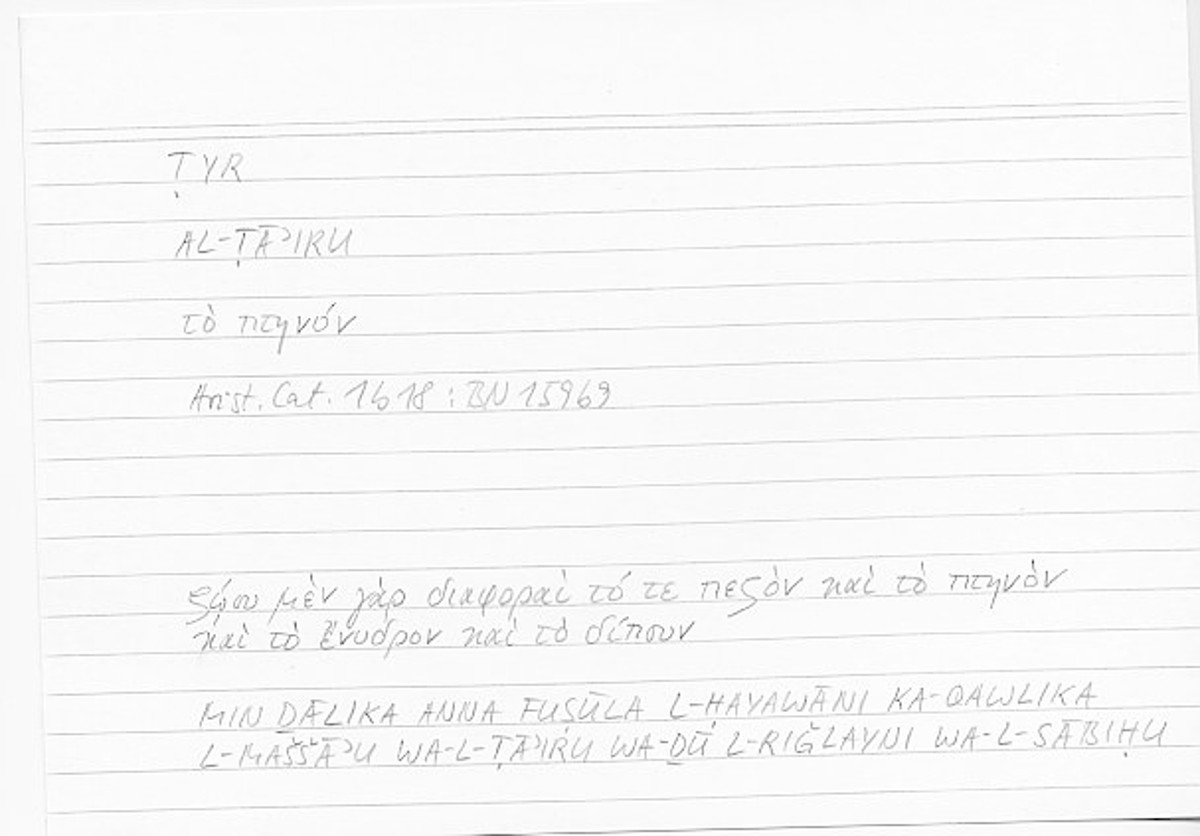 ṬYR
AL-ṬĀʾIRU
τὸ πτηνόν
Arist. Cat. 1b18 : BN 159b9
ζῴου μὲν γὰρ διαφοραὶ τό τε πεζὸν καὶ τὸ πτηνὸν
καὶ τὸ ἔνυδρον καὶ τὸ δίπουν
MIN ḎĀLIKA ANNA FUṢŪLA L-ḤAYAWĀNI KA-QAWLIKA
L-MAŠŠĀʾU WA-L-ṬĀʾIRU WA-ḎŪ L-RIǦLAYNI WA-L-SĀBIḤU